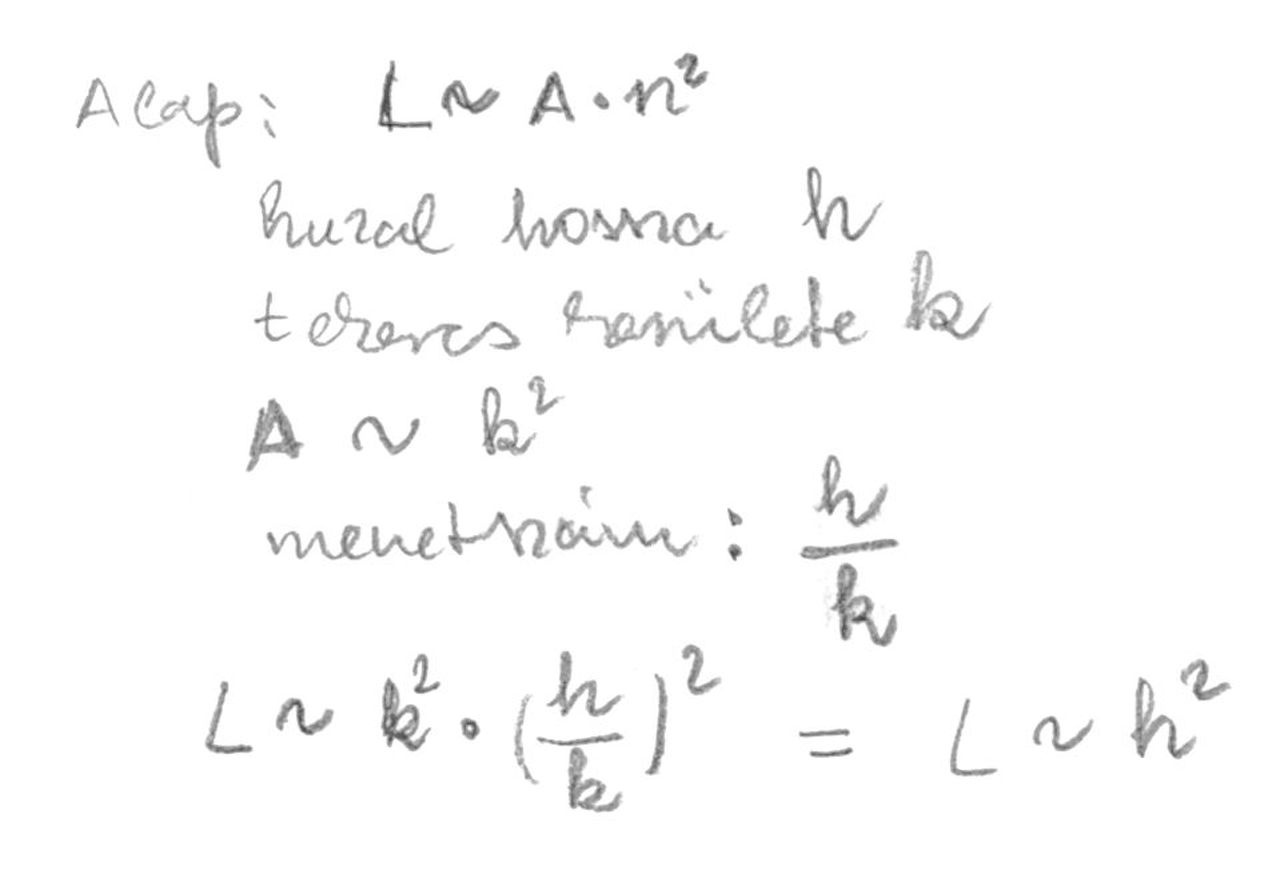 Alap: L ~ A · n²
huzal hossza h
tekercs kerülete k
A ~ k²
menetszám: h/k
L ~ k² · (h/k)² = L ~ h²